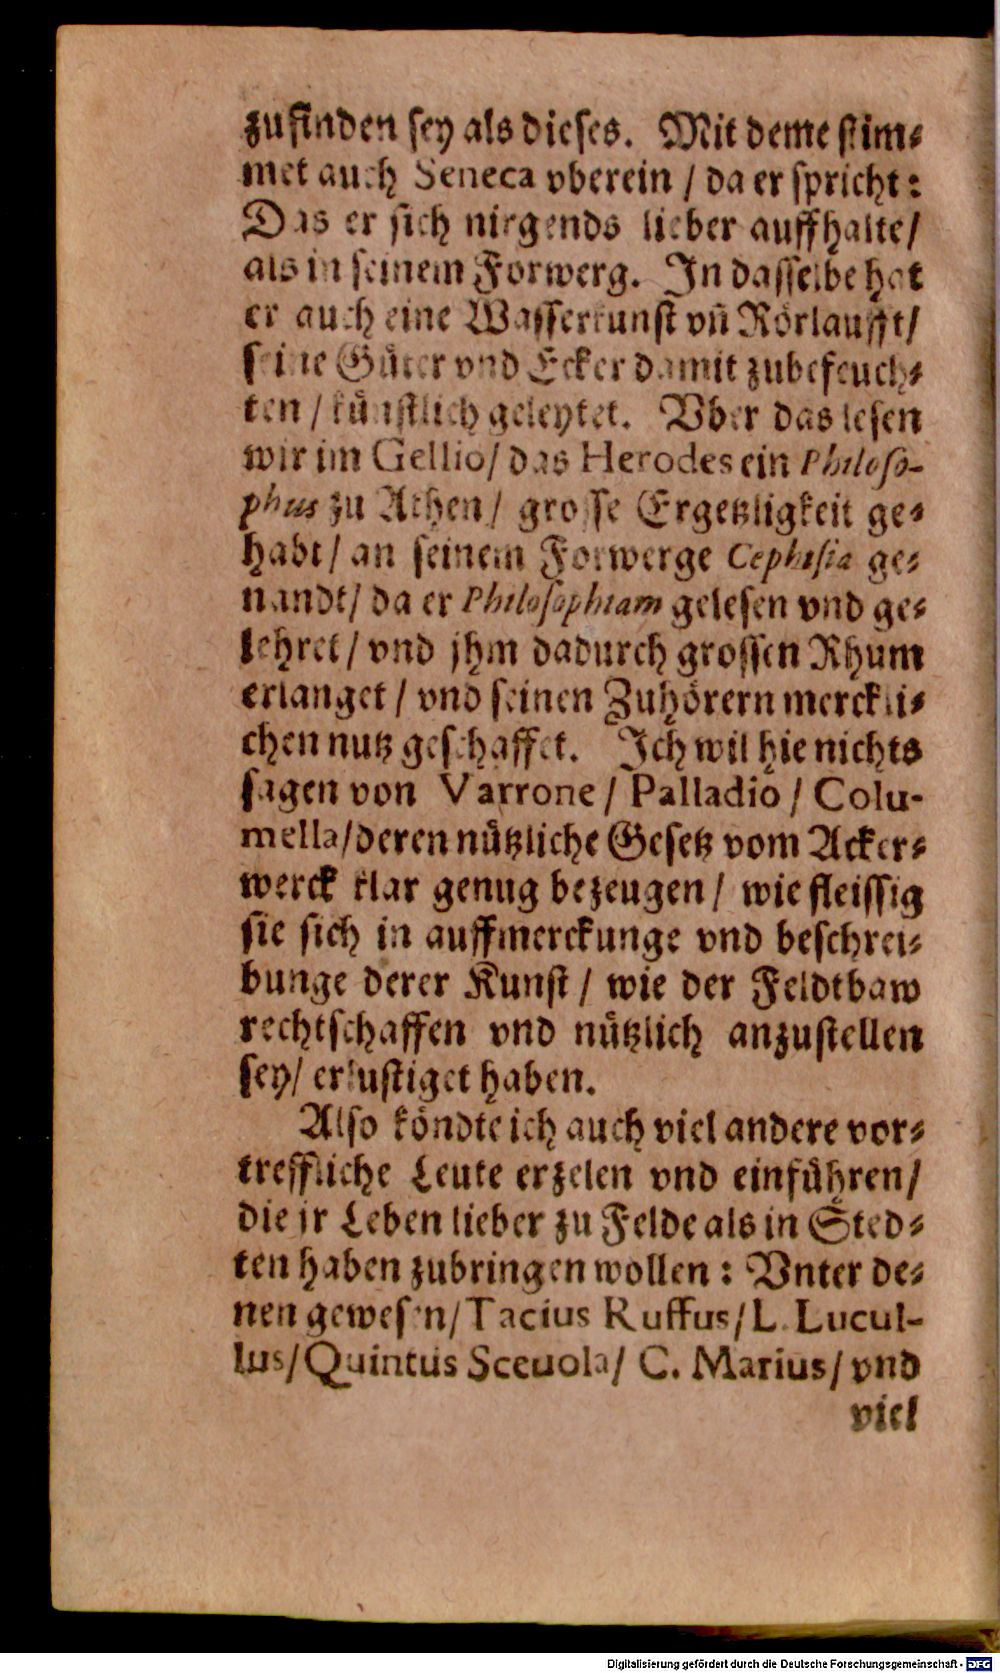 zufinden sey als dieses. Mit deme stim⸗
met auch Seneca vberein / da er spricht:
Das er sich nirgends lieber auffhalte/
als in seinem Forwerg. In dasselbe hat
er auch eine Wasserkunst vn̄ Rörlaufft/
seine Güter vnd Ecker damit zubefeuch⸗
ten / künstlich geleytet. Vber das lesen
wir im Gellio/ das Herodes ein Philoso-
phus zu Athen/ grosse Ergetzligkeit ge⸗
habt / an seinem Forwerge Cephisia ge⸗
nandt/ da er Philosophiam gelesen vnd ge⸗
lehret / vnd jhm dadurch grossen Rhum
erlanget / vnd seinen Zuhörern merckli⸗
chen nutz geschaffet. Ich wil hie nichts
sagen von Varrone / Palladio / Colu-
mella/deren nützliche Gesetz vom Acker⸗
werck klar genug bezeugen/ wie fleissig
sie sich in auffmerckunge vnd beschrei⸗
bunge derer Kunst / wie der Feldtbaw
rechtschaffen vnd nützlich anzustellen
sey/ erlustiget haben.
Also köndte ich auch viel andere vor⸗
treffliche Leute erzelen vnd einführen/
die jr Leben lieber zu Felde als in Sted⸗
ten haben zubringen wollen: Vnter de⸗
nen gewesen/Tacius Ruffus/L. Lucul-
lus/Quintus Sceuola/ C. Marius/ vnd
viel
Digitalisierung gefördert durch die Deutsche Forschungsgemeinschaft - DFG